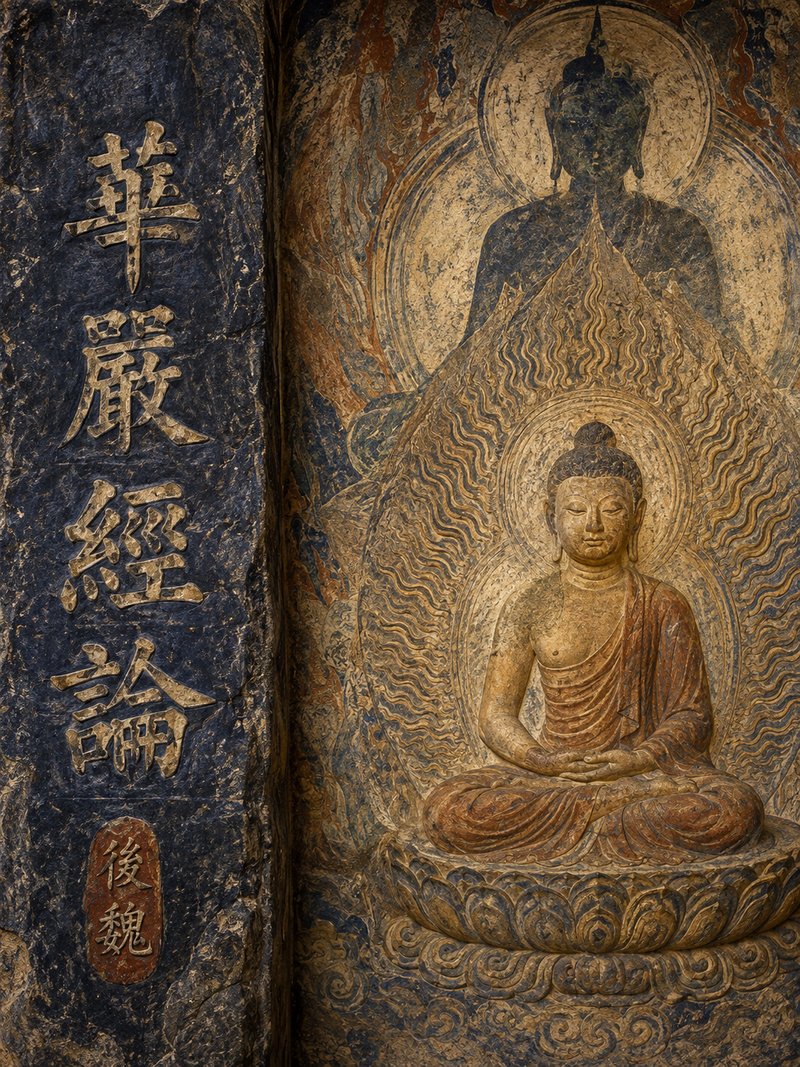 華嚴經論
後魏